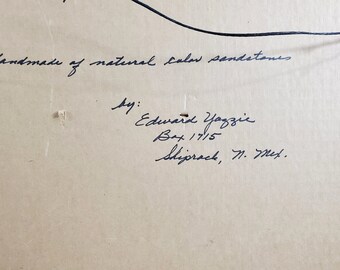 Handmade of natural color sandstones
by:
Edward Yazzie
Box 1715
Shiprock, N. Mex.